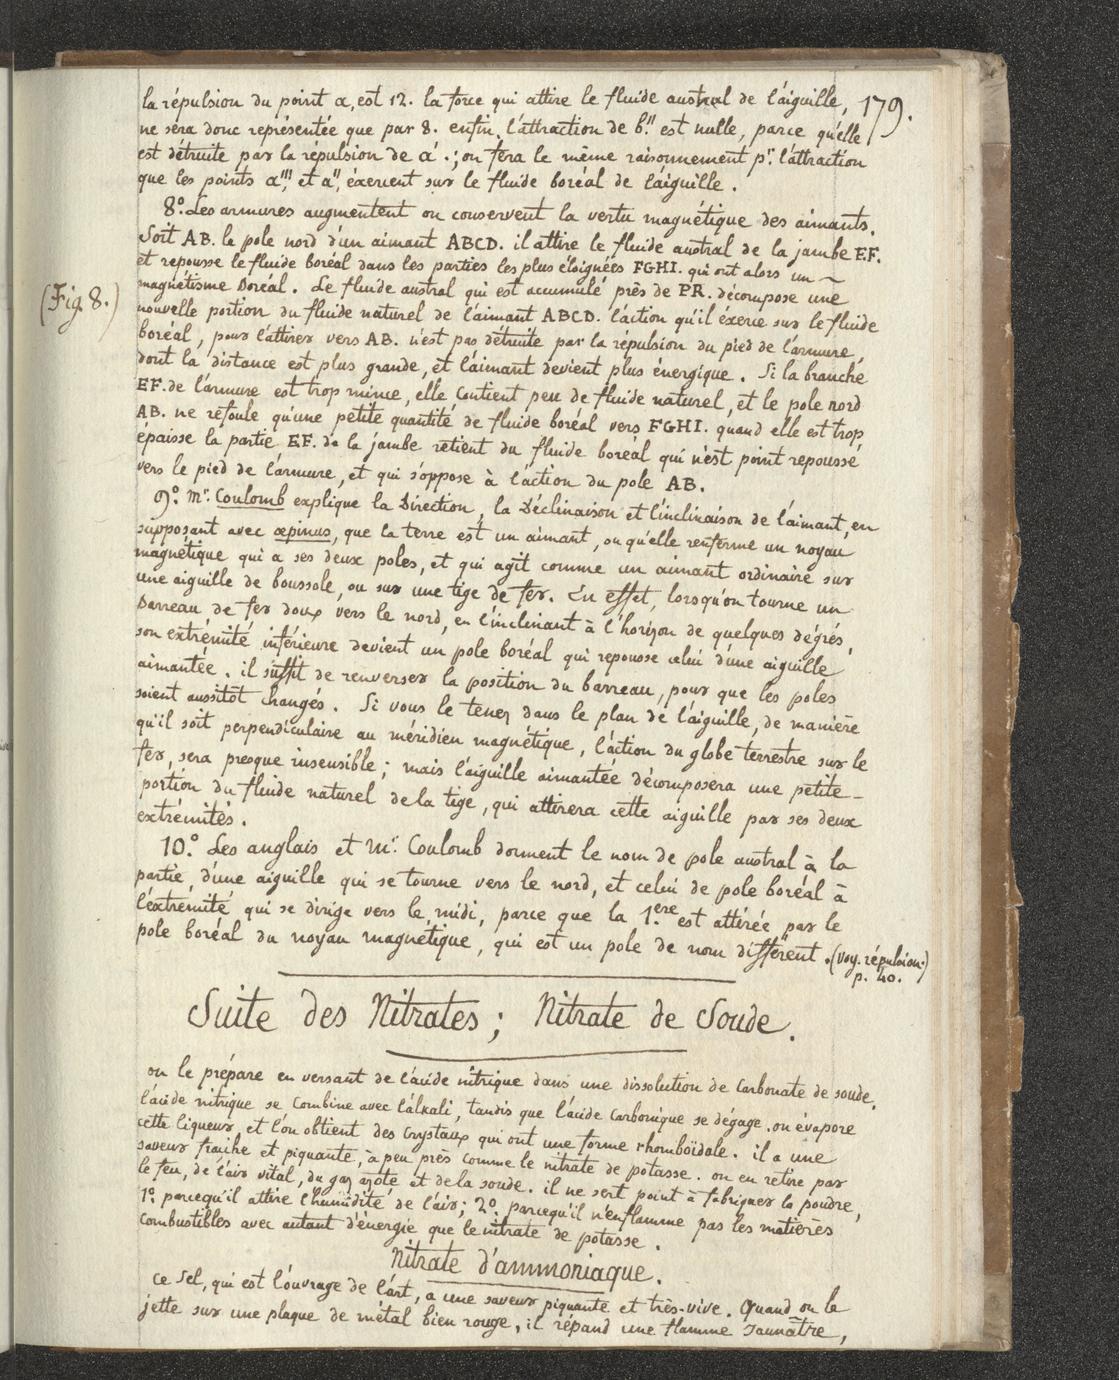 179.
la répulsion du point a, est 12. la force qui attire le fluide austral de l'aiguille,
ne sera donc représentée que par 8. enfin, l'attraction de b." est nulle, parce qu'elle
est détruite par la répulsion de a' .; on fera le même raisonnement pr. l'attraction
que les points a''', et a'', éxercent sur le fluide boréal de l'aiguille.
8º. Les armures augmentent ou conservent la vertu magnétique des aimants.
Soit AB. le pole nord d'un aimant ABCD. il attire le fluide austral de la jambe EF.
et repousse le fluide boréal dans les parties les plus éloignées FGHI. qui ont alors un ~
magnétisme Boréal. Le fluide austral qui est accumulé près de PR. décompose une
(Fig. 8.)
nouvelle portion du fluide naturel de l'aimant ABCD. l'action qu'il éxerce sur le fluide
boréal, pour l'attirer vers AB. n'est pas détruite par la répulsion du pied de l'armure,
dont la distance est plus grande, et l'aimant devient plus énergique. Si la branche
EF. de l'armure est trop mince, elle contient peu de fluide naturel, et le pole nord
AB. ne refoule qu'une petite quantité de fluide boréal vers FGHI. quand elle est trop
épaisse la partie EF. de la jambe retient du fluide boréal qui n'est point repoussé
vers le pied de l'armure, et qui s'oppose à l'action du pole AB.
9º. Mr. Coulomb explique la Direction, la Déclinaison et l'inclinaison de l'aimant, en
supposant avec æpinus, que la terre est un aimant, ou qu'elle renferme un noyau
magnétique qui a ses deux poles, et qui agit comme un aimant ordinaire sur
une aiguille de boussole, ou sur une tige de fer. En effet, lorsqu'on tourne un
Barreau de fer doux vers le nord, en l'inclinant à l'horizon de quelques dégrés,
son extrémité inférieure devient un pole boréal qui repousse celui d'une aiguille
aimantée. il suffit de renverser la position du barreau, pour que les poles
soient aussitôt changés. Si vous le tenez dans le plan de l'aiguille, de manière
qu'il soit perpendiculaire au méridien magnétique, l'action du globe terrestre sur le
fer, sera presque insensible; mais l'aiguille aimantée décomposera une petite -
portion du fluide naturel de la tige, qui attirera cette aiguille par ses deux
extrémités.
10º. Les anglais et Mr. Coulomb donnent le nom de pole austral à la
partie, d'une aiguille qui se tourne vers le nord, et celui de pole boréal à
l'extrémité qui se dirige vers le midi, parce que la 1ere est attirée par le
pole boréal du noyau magnétique, qui est un pole de nom différent. (voy. répulsion.)
p. 40.
Suite des Nitrates; Nitrate de Soude.
on le prépare en versant de l'acide nitrique dans une dissolution de Carbonate de soude,
l'acide nitrique se combine avec l'alkali, tandis que l'acide Carbonique se dégage. on évapore
cette liqueur, et l'on obtient des Crystaux qui ont une forme rhomboïdale. il a une
saveur fraiche et piquante, à peu près comme le nitrate de potasse. on en retire par
le feu, de l'air vital, du gaz azote et de la soude. il ne sert point à fabriquer la poudre,
1º. parcequ'il attire l'humidité de l'air; 2º. parcequ'il n'enflamme pas les matières
Combustibles avec autant d'énergie que le nitrate de potasse.
Nitrate d'ammoniaque.
Ce sel, qui est l'ouvrage de l'art, a une saveur piquante et très-vive. Quand on le
jette sur une plaque de métal bien rouge, il répand une flamme Jaunâtre,